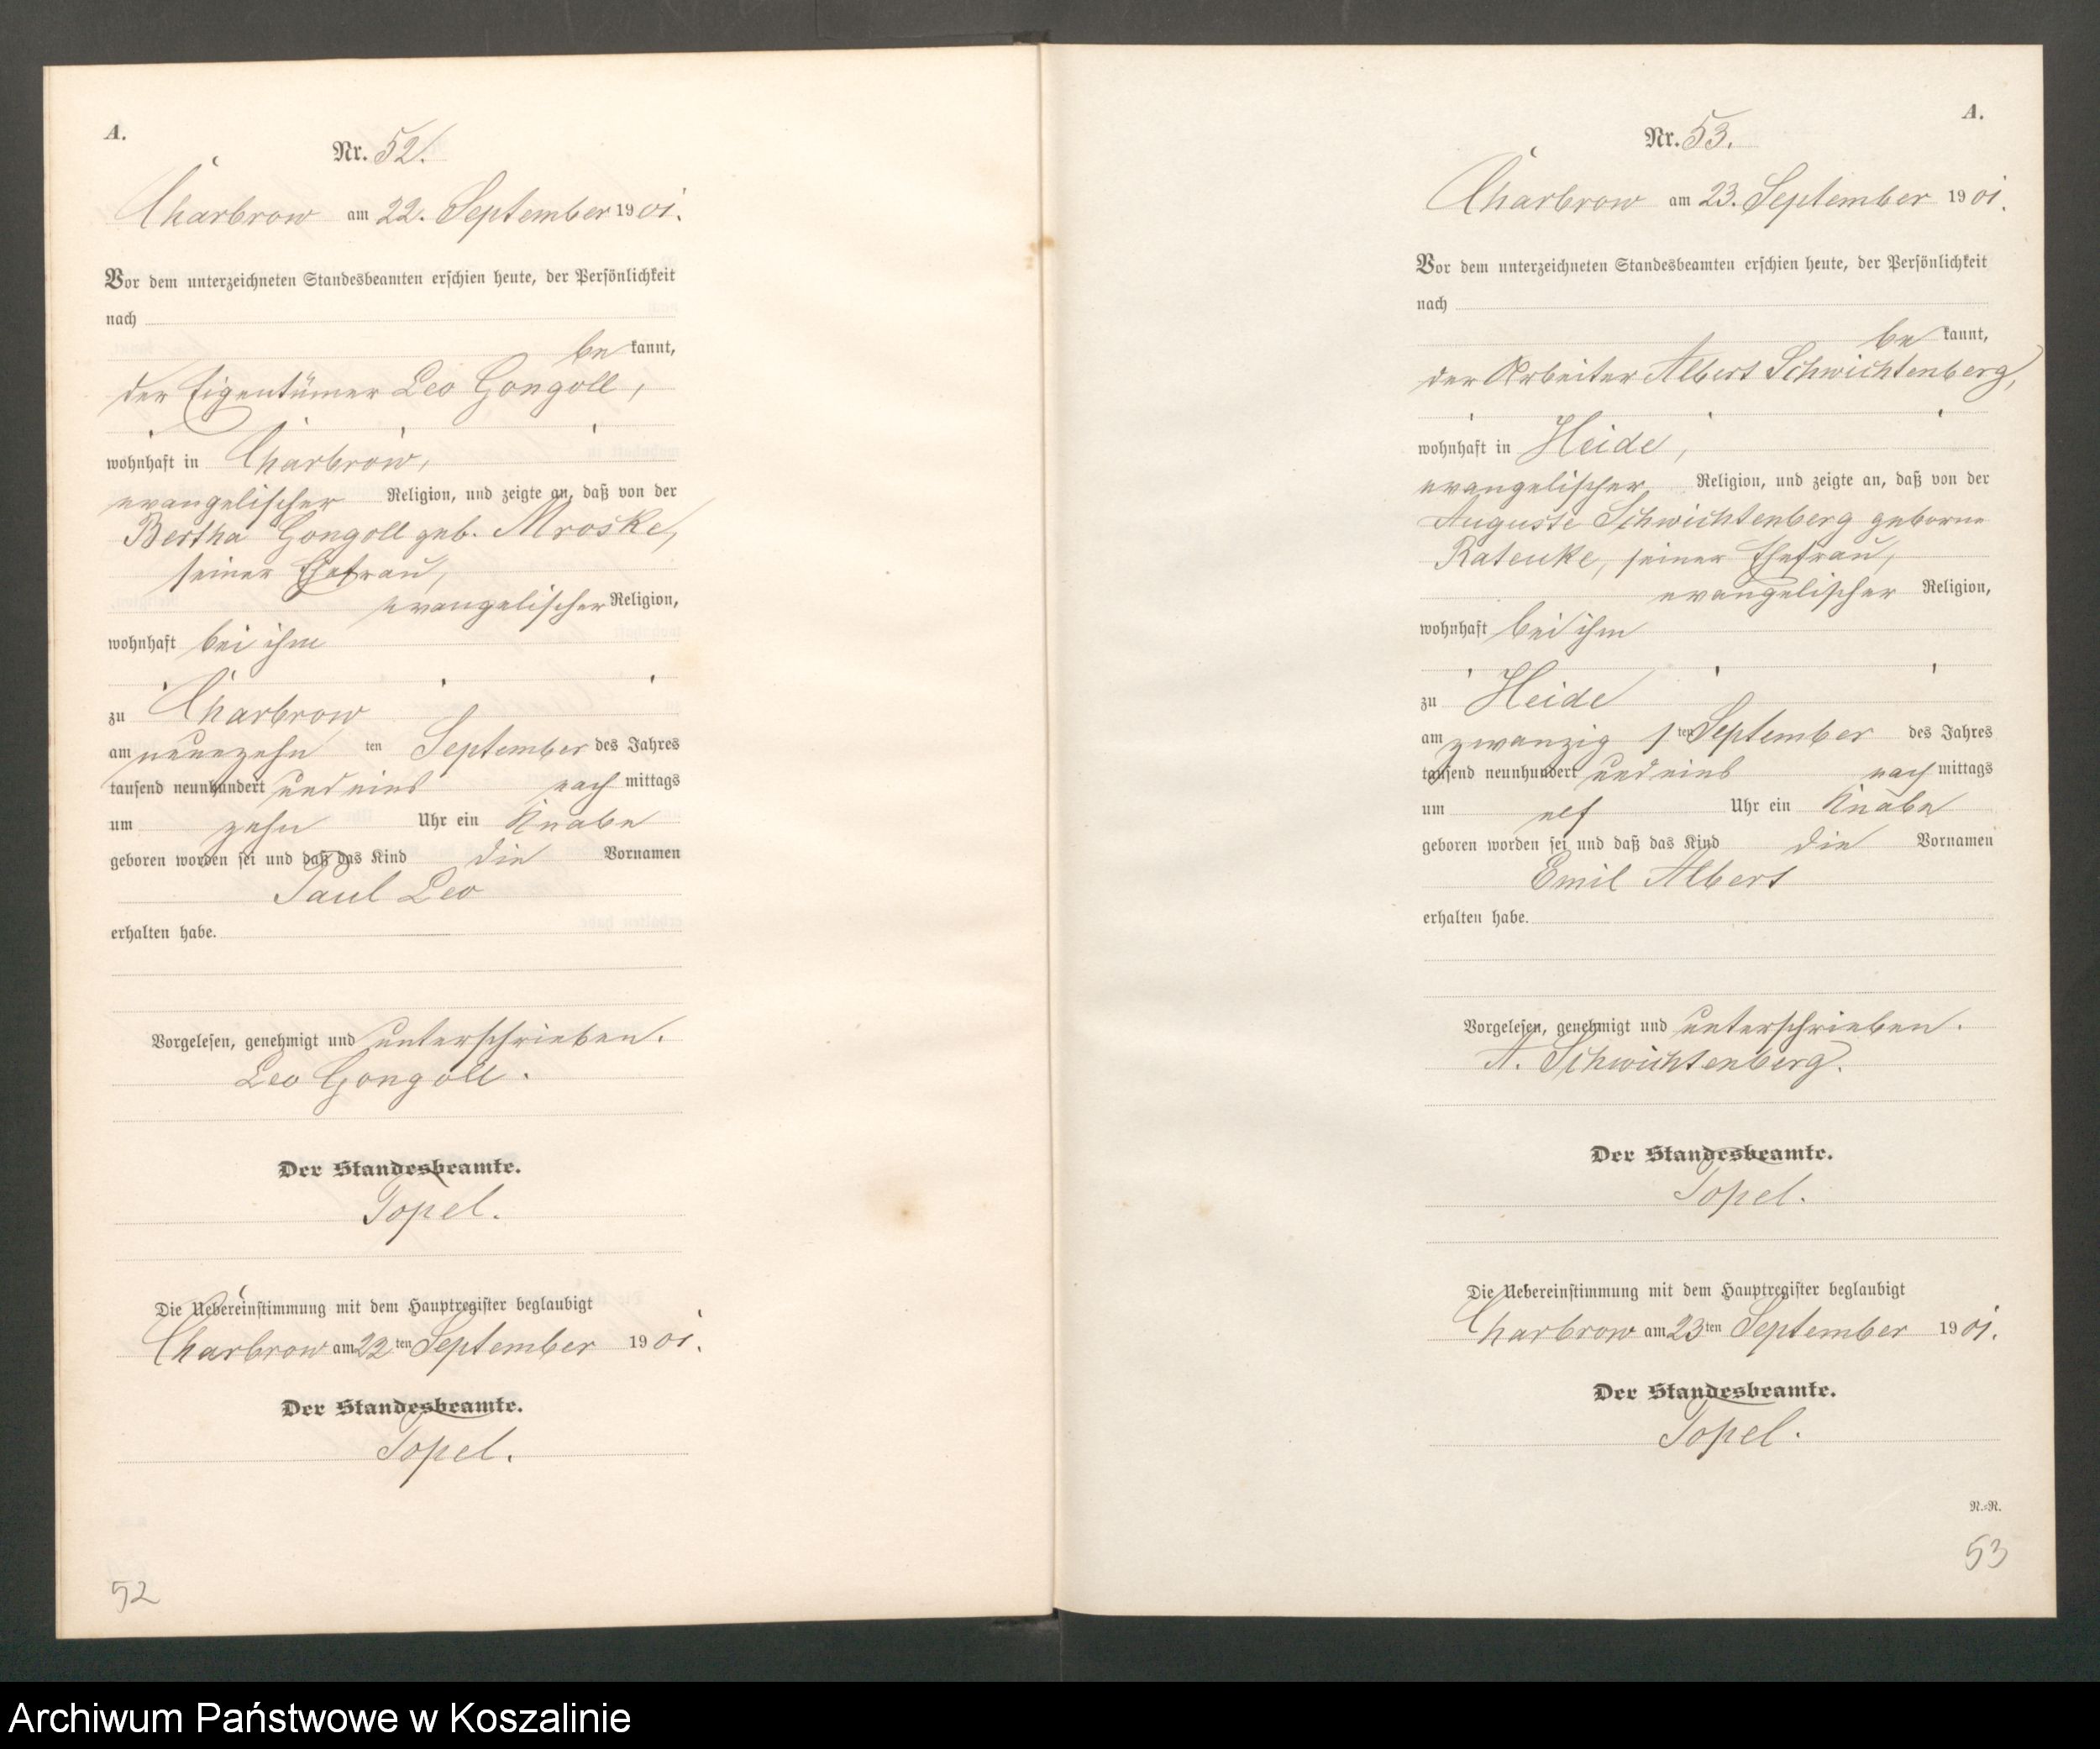 A.
Nr. 52.
Charbrow am 22. September 1901.
Vor dem unterzeichneten Standesbeamten erschien heute, der Persönlichkeit
nach
be kannt,
der Eigentümer Leo Gongoll,
wohnhaft in Charbrow,
evangelischer Religion, und zeigte an, daß von der
Bertha Gongoll geb. Mroske,
seiner Ehefrau,
evangelischer Religion,
wohnhaft bei ihm
zu Charbrow
am neunzehn ten September des Jahres
tausend neunhundert und eins nach mittags
um zehn Uhr ein Knabe
geboren worden sei und daß das Kind die Vornamen
Paul Leo
erhalten habe.
Vorgelesen, genehmigt und unterschrieben.
Leo Gongoll.
Der Standesbeamte.
Topel.
Die Uebereinstimmung mit dem Hauptregister beglaubigt
Charbrow am 22 ten September 1901.
Der Standesbeamte.
Topel.
52
A.
Nr. 53.
Charbrow am 23. September 1901.
Vor dem unterzeichneten Standesbeamten erschien heute, der Persönlichkeit
nach
be kannt,
der Arbeiter Albert Schwichtenberg,
wohnhaft in Heide,
evangelischer Religion, und zeigte an, daß von der
Auguste Schwichtenberg geborne
Ratenke, seiner Ehefrau,
evangelischer Religion,
wohnhaft bei ihm
zu Heide
am zwanzig sten September des Jahres
tausend neunhundert und eins nach mittags
um elf Uhr ein Knabe
geboren worden sei und daß das Kind die Vornamen
Emil Albert
erhalten habe.
Vorgelesen, genehmigt und unterschrieben.
A. Schwichtenberg.
Der Standesbeamte.
Topel.
Die Uebereinstimmung mit dem Hauptregister beglaubigt
Charbrow am 23 ten September 1901.
Der Standesbeamte.
Topel.
N.=N.
53
Archiwum Państwowe w Koszalinie